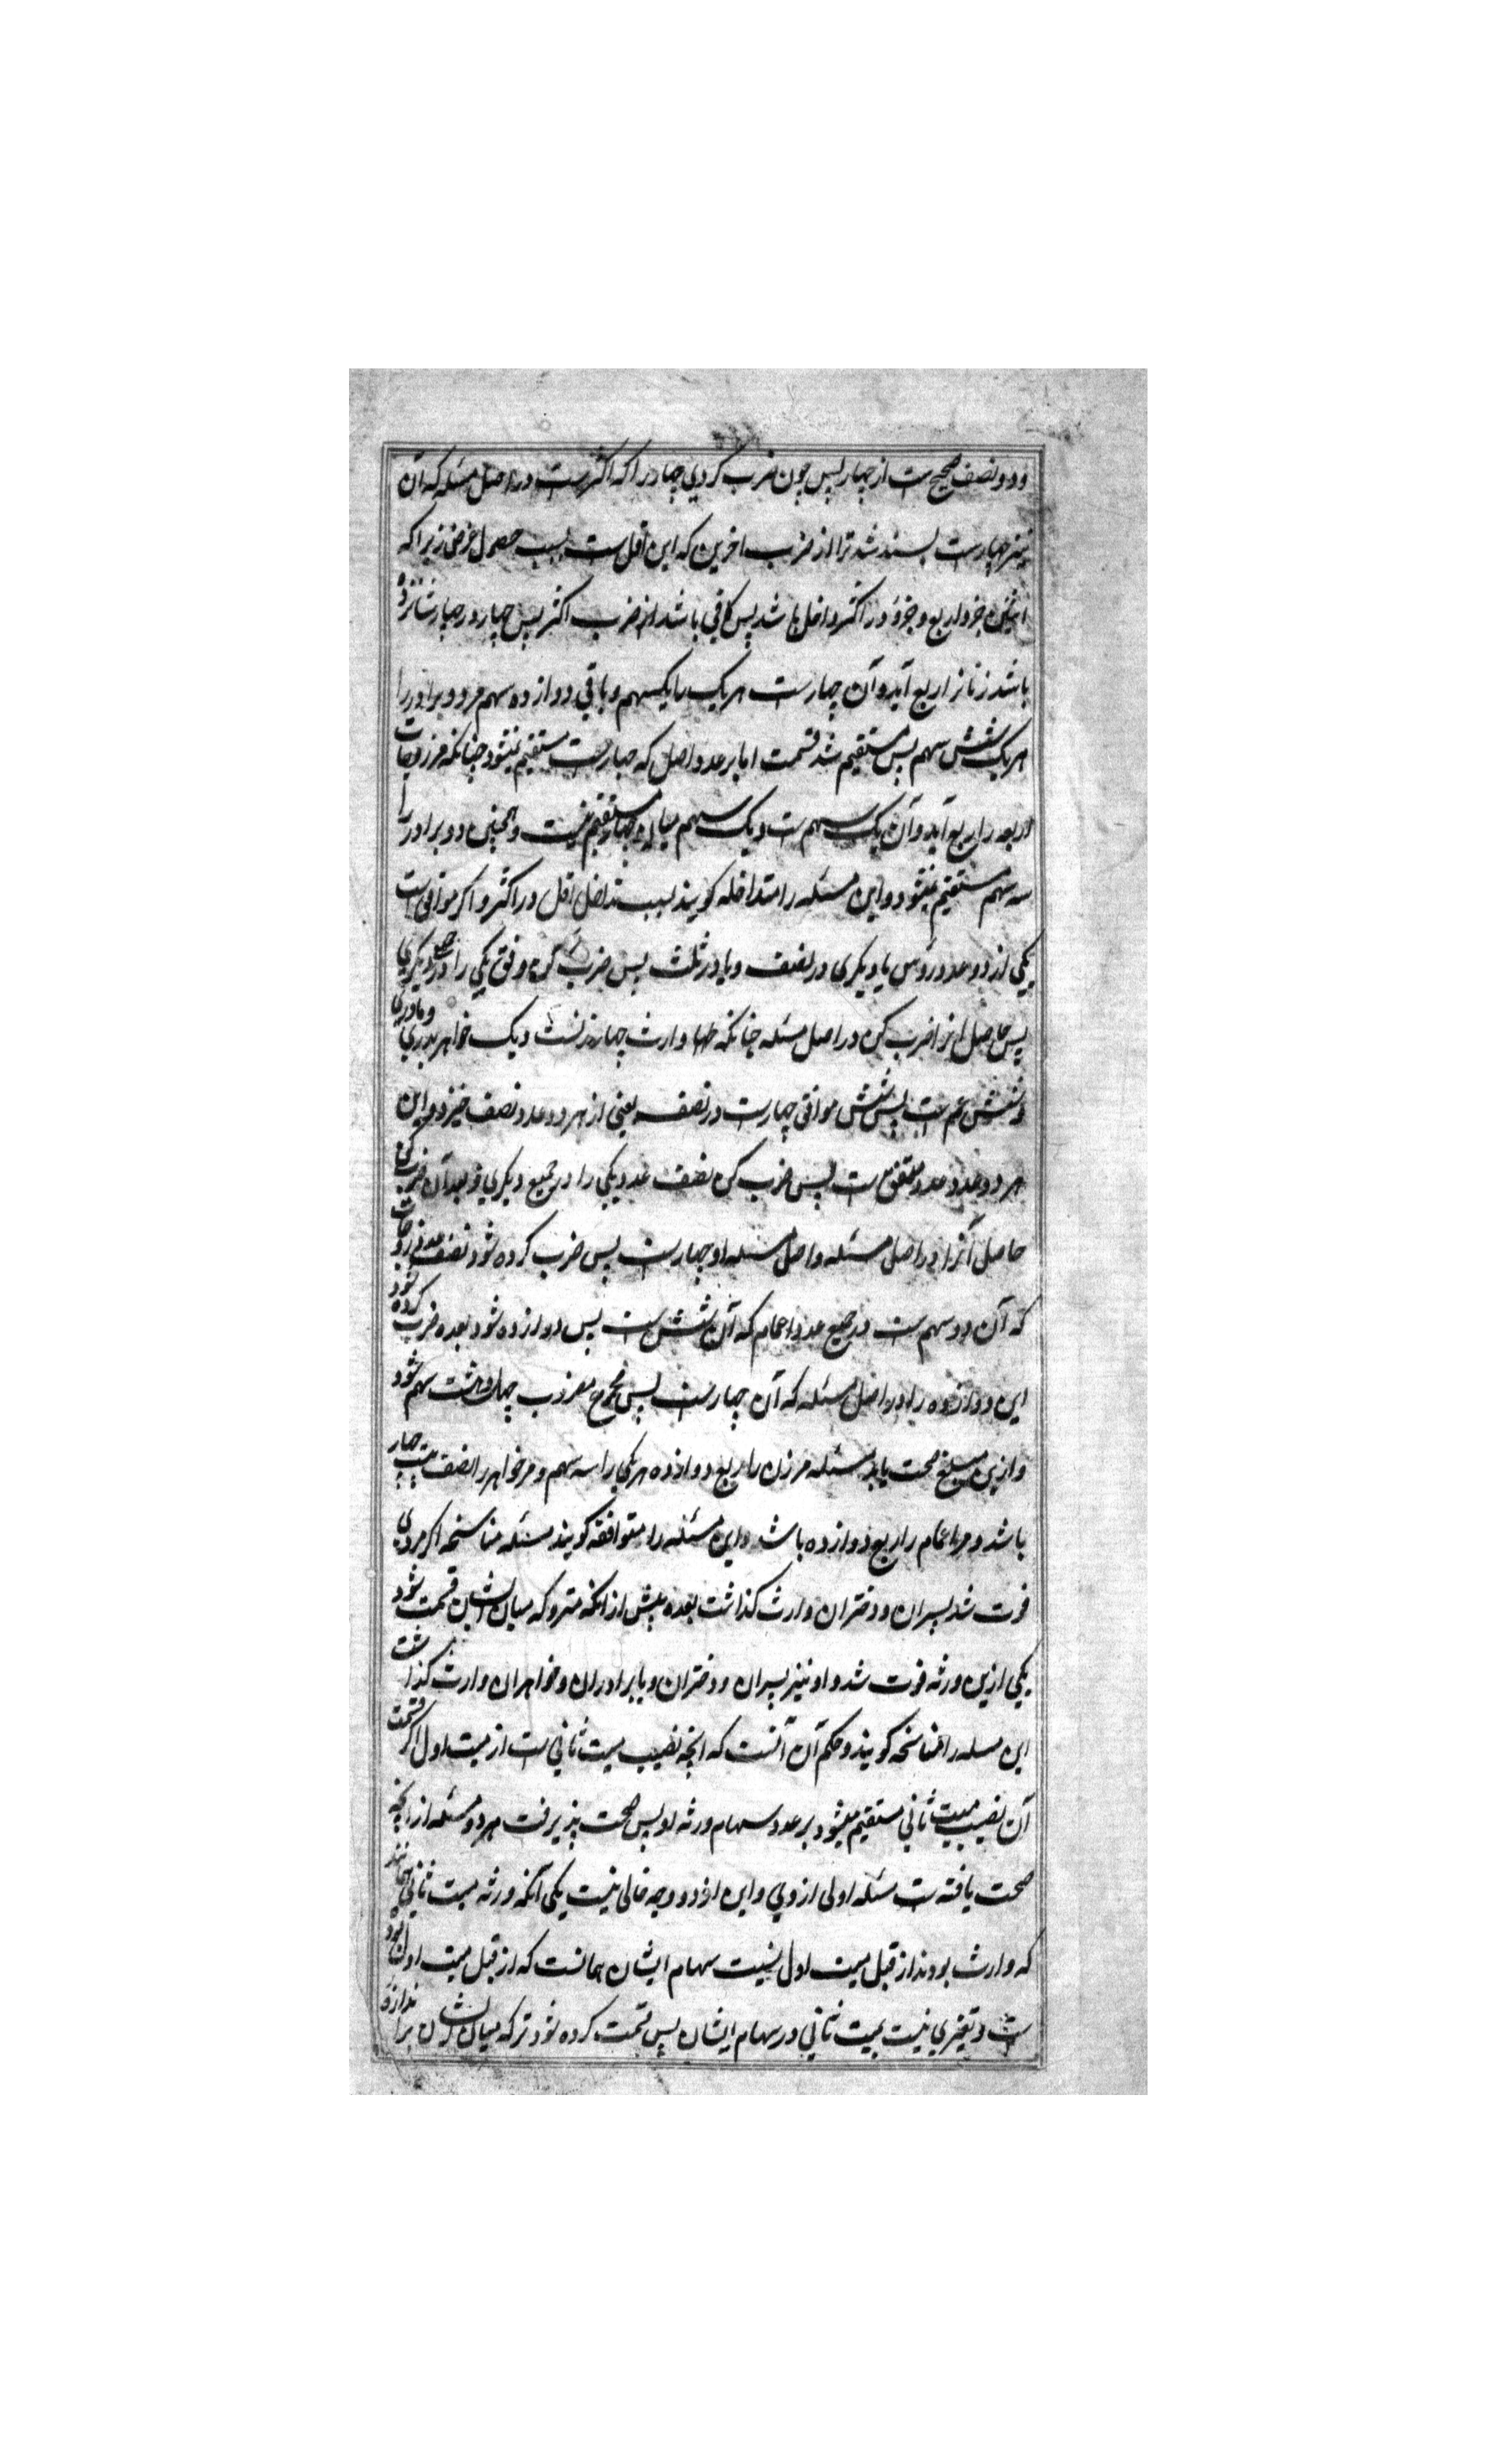 ودو نصف صحیح ست از چهار پس چون ضرب کردی چهار را که اکثر ست در اصل مسئله که آن
نیز چهار ست بسند شد ترا از ضرب اخرین که این اقل ست بسبب حصول غرض زیرا که
اثنین جزو اربع و جزؤ در اکثر داخل باشد پس کافی باشد از ضرب اکثر پس چهار در چهار شانزده
باشد زنانرا ربع آید و آن چهار ست هر یک را یکسهم و باقی دوازده سهم مر دو برادر را
هر یک شش سهم پس مستقیم شد قسمت اما بر عدد اصل که چهار ست مستقیم نمیشود چنانکه مر زوجات
اربعه را ربع آید و آن یک سهم ست و یک سهم میان چهار مستقیم نیست و همچنین دو برادر را
سه سهم مستقیم نمیشود و این مسئله را متداخله کویند بسبب تداخل اقل در اکثر و اکر موافق ست
یکی از دو عدد رؤس با دیکری در نصف و یا در ثلث پس ضرب کن وفق یکی را در جمیع دیکری
پس حاصل انرا ضرب کن در اصل مسئله چنانکه وارث چهار زنست و یک خواهر پدری و مادری
و شش عم ست پس شش موافق چهار ست در نصف یعنی از هر دو عدد نصف خیزد و این
هر دو عدد عدد متفق ست پس ضرب کن نصف عدد یکی را در جمیع دیکری و بعد آن ضرب کن
حاصل آنرا در اصل مسئله و اصل مسئله او چهار ست پس ضرب کرده شود نصف عدد زوجات
که آن دو سهم ست در جمیع عدد اعمام که آن شش ست پس دوازده شود بعده ضرب کرده شود
این دوازده را در اصل مسئله که آن چهار ست پس مجموع مضروب چهل و هشت سهم شود
و ازین مبلغ صحت یابد مسئله مر زن را ربع دوازده هر یکی را سه سهم و مر خواهر را نصف بیست چهار
باشد و مر اعمام را ربع دوازده باشد و این مسئله را متوافقه کویند مسئله مناسخه اکر مردی
فوت شد پسران و دختران وارث کذاشت بعده پیش از آنکه متروکه میان ایشان قسمت شود
یکی ازین ورثه فوت شد و او نیز پسران و دختران و یا برادران و خواهران وارث کذاشت
این مسله را مناسخه کویند و حکم آن آنست که انچه نصیب میت ثانی ست از میت اول اکر قسمت
آن نصیب میت ثانی مستقیم میشود بر عدد سهام ورثه او پس صحت پذیرفت هر دو مسئله از انچه
صحت یافته ست مسئله اولی از وی و این از دو وجه خالی نیست یکی آنکه ورثه میت ثانی همانند
که وارث بودند از قبل میت اول نسبت سهام ایشان همانست که از قبل میت اول بوده
ست و تغیری نیست بمیت ثانی در سهام ایشان پس قسمت کرده شود ترکه میان ایشان بر اندازه